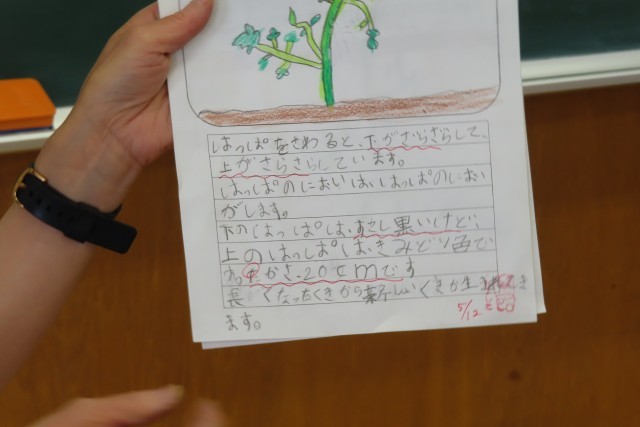 はっぱをさわると、下がざらざらして、
上がさらさらしています。
はっぱのにおいは、はっぱのにおい
がします。
下のはっぱは、すこし黒いけど、
上のはっぱはきみどり色で
たかさ、20cmです
長くなったくきから新しいくきが生
ます。
5/12